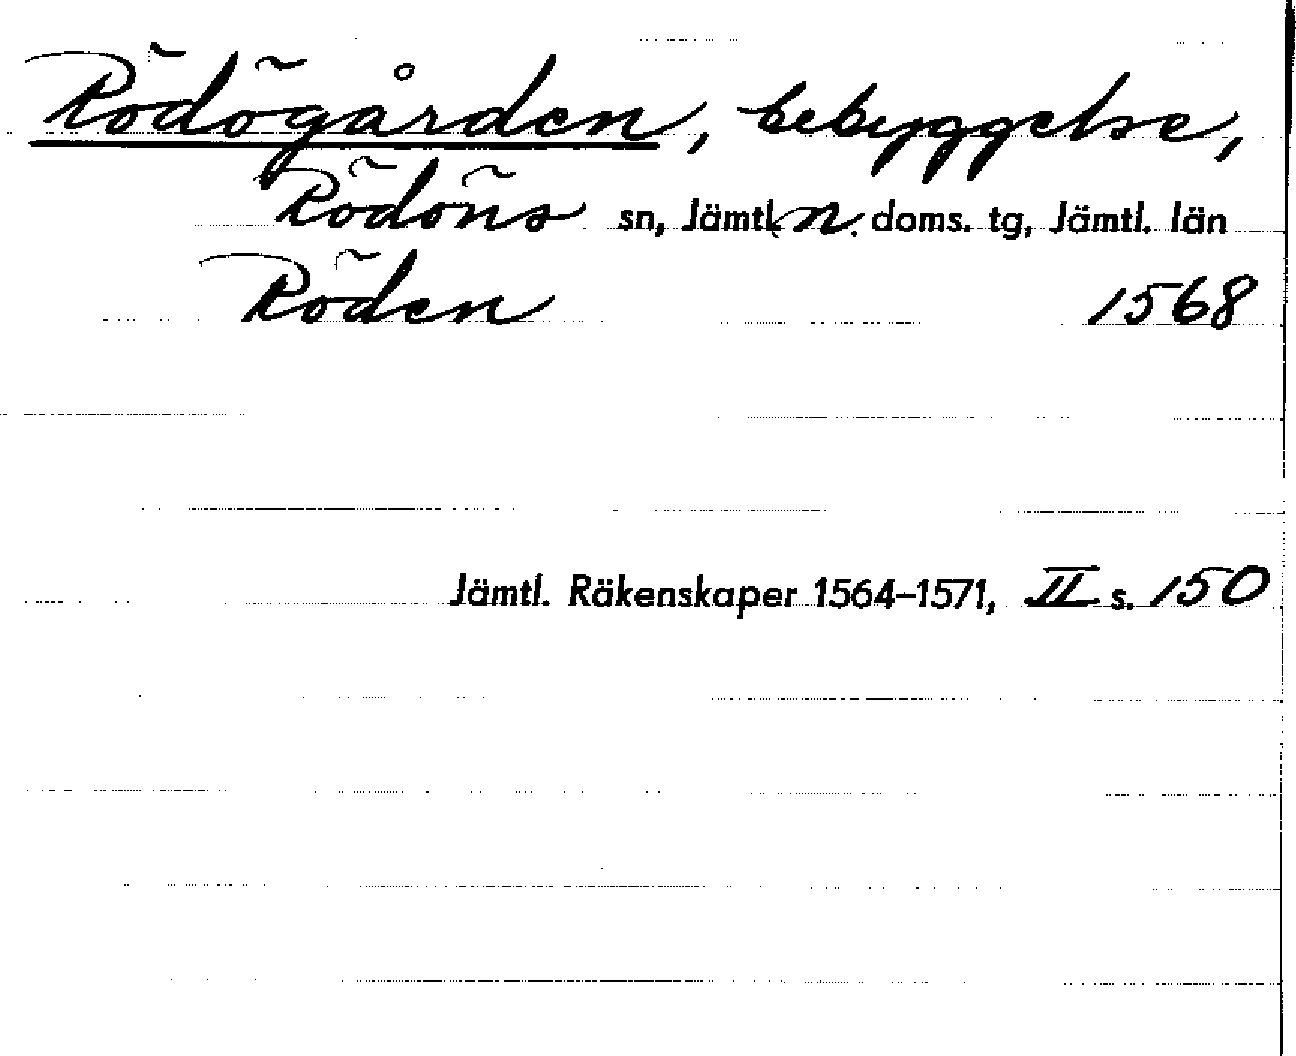 Rödögården, bebyggelse,
Rödöns sn, Jämtl. n. doms. tg, Jämtl. län
Röden 1568
Jämtl. Räkenskaper 1564–1571, II s. 150